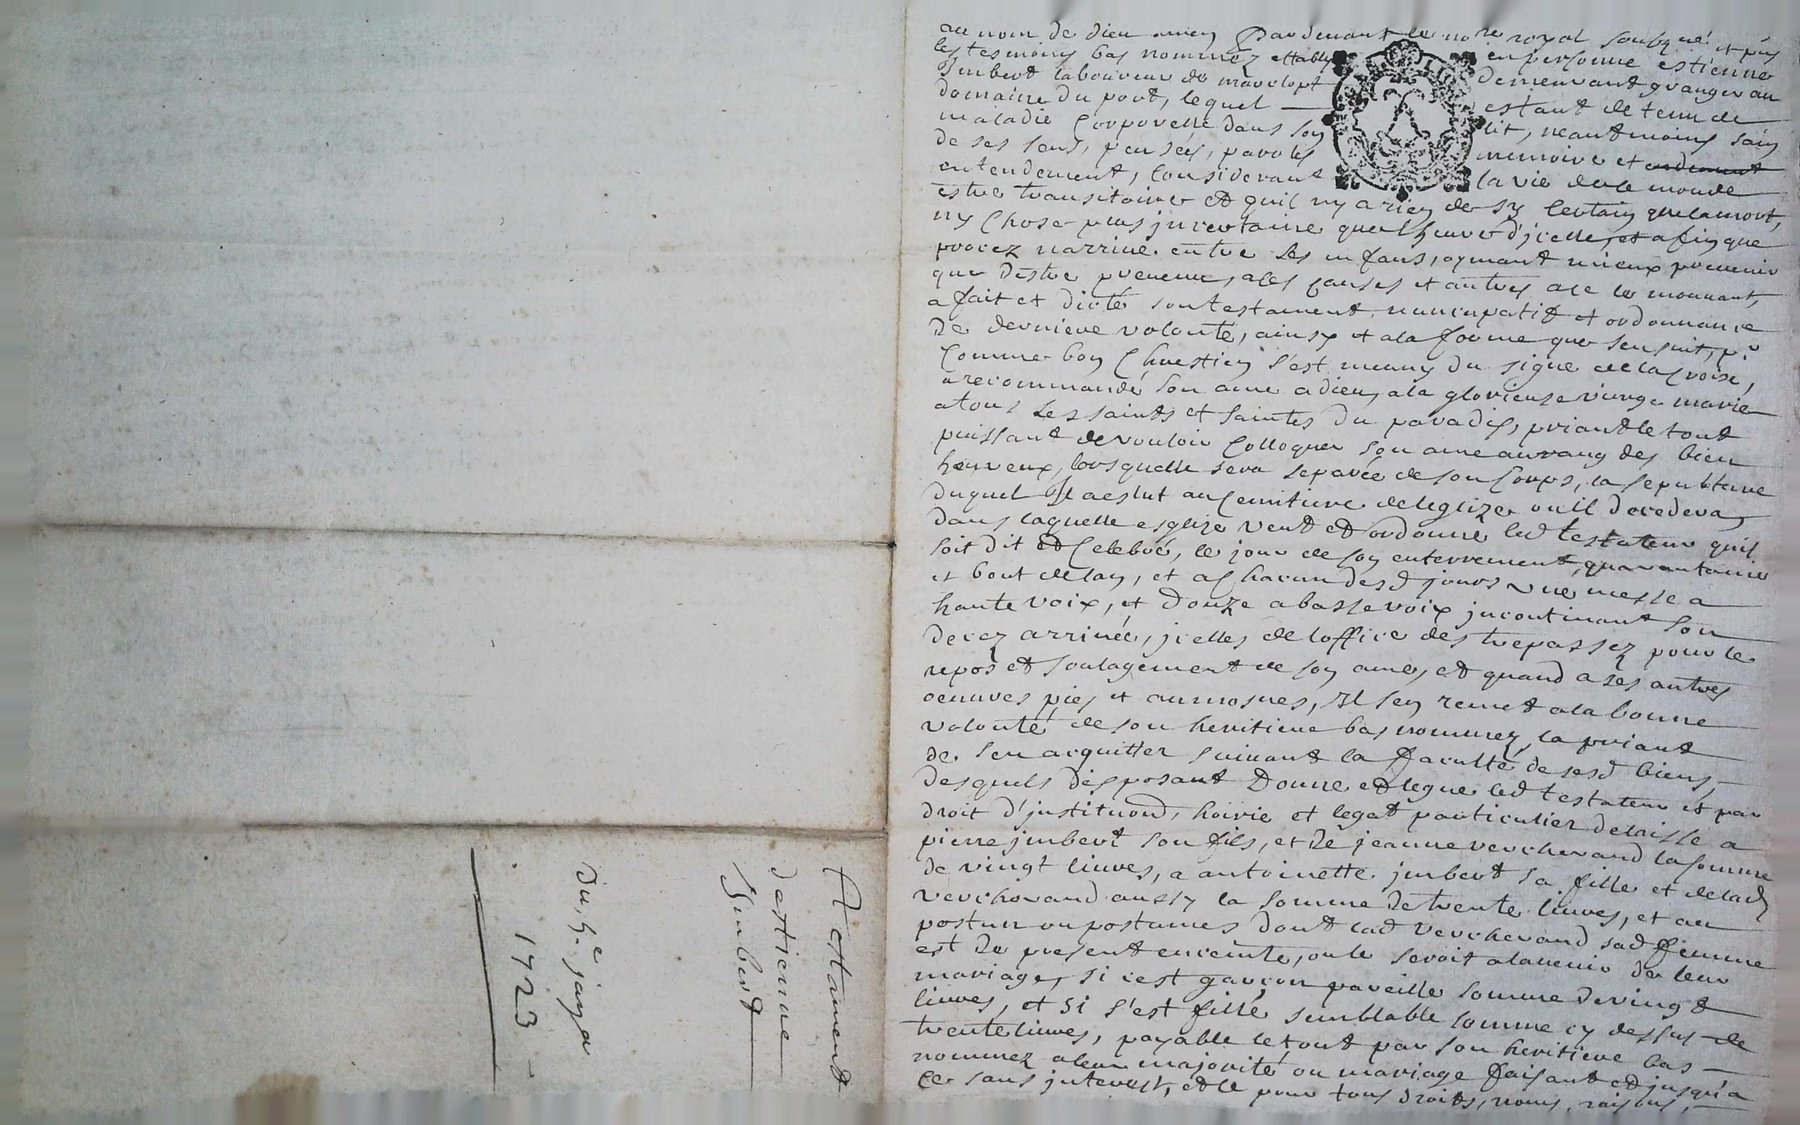 au nom de dieu amen Pardevant le no.re royal soubzné et p.ns
les tesmoins bas nommez estably en personne estienne
Jmbert laboureur de demeurant granger au
domaine du port, lequel estant detenu de
maladie Corporelle dans son lit, neantmoins sain
de ses sens, pensées, paroles memoire et
entendement, Considerant la vie de ce monde
estre transitoire et quil ny a rien de sy Certain que la mort,
ny Chose plus jncertaine que lheure d'jcelle, et afin que
procez narrive entre ses enfans, aymant mieux prevenir
que destre prevenu, a les Causes et autres a ce le mouvant,
a fait et dicté son testament nuncupatif et ordonnance
de derniere volonté, ainsy et a la forme que sensuit, p.r
Comme bon Chrestien s'est muny du signe de la Croix,
a recommandé son ame a dieu, a la glorieuse vierge marie
a tous les saints et saintes du paradis, priant le tout
puissant de vouloir Colloquer son ame au rang des bien
heureux, lorsquelle sera separée de son Corps, la sepulture
duquel Jl a eslut au Cemitiere de leglize ou il decedera,
dans laquelle esglize veut et ordonne led testateur quil
soit dit et Celebré, le jour de son enterrement, quarantaine
et bout de lan, et a Chacun desd jours une messe a
haute voix, et douze a basse voix jncontinant son
decez arrivée, jcelles de loffice des trepassez pour le
repos et soulagement de son ame, et quand a ses autres
oeuvres pies et aumosnes, Jl sen remet a la bonne
volonté de son heritiere bas nommez, la priant
de sen acquitter suivant la faculté de sesd biens,
desquels disposant Donne et legue led testateur et par
droit d'jnstitution, hoirie et legat particulier delaisse a
pierre jmbert son fils, et de jeanne vercherand la somme
de vingt livres, a antoinette jmbert sa fille et de lad
vercherand aussy la somme de trente livres, et au
postume ou postumes dont lad vercherand sad femme
est de present enceinte, ou le seroit a lavenir de leur
mariage, si cest garçon pareille somme de vingt
livres, et si s'est fille semblable somme cy dessus de
trente livres, payable le tout par son heritiere bas
nommez a leur majorité ou mariage faisant et jusqu'a
Ce sans jnterest, et ce pour tous droits, noms, raisons,
Testament
destienne
Jmbert
du, 5.e janv.r
1723